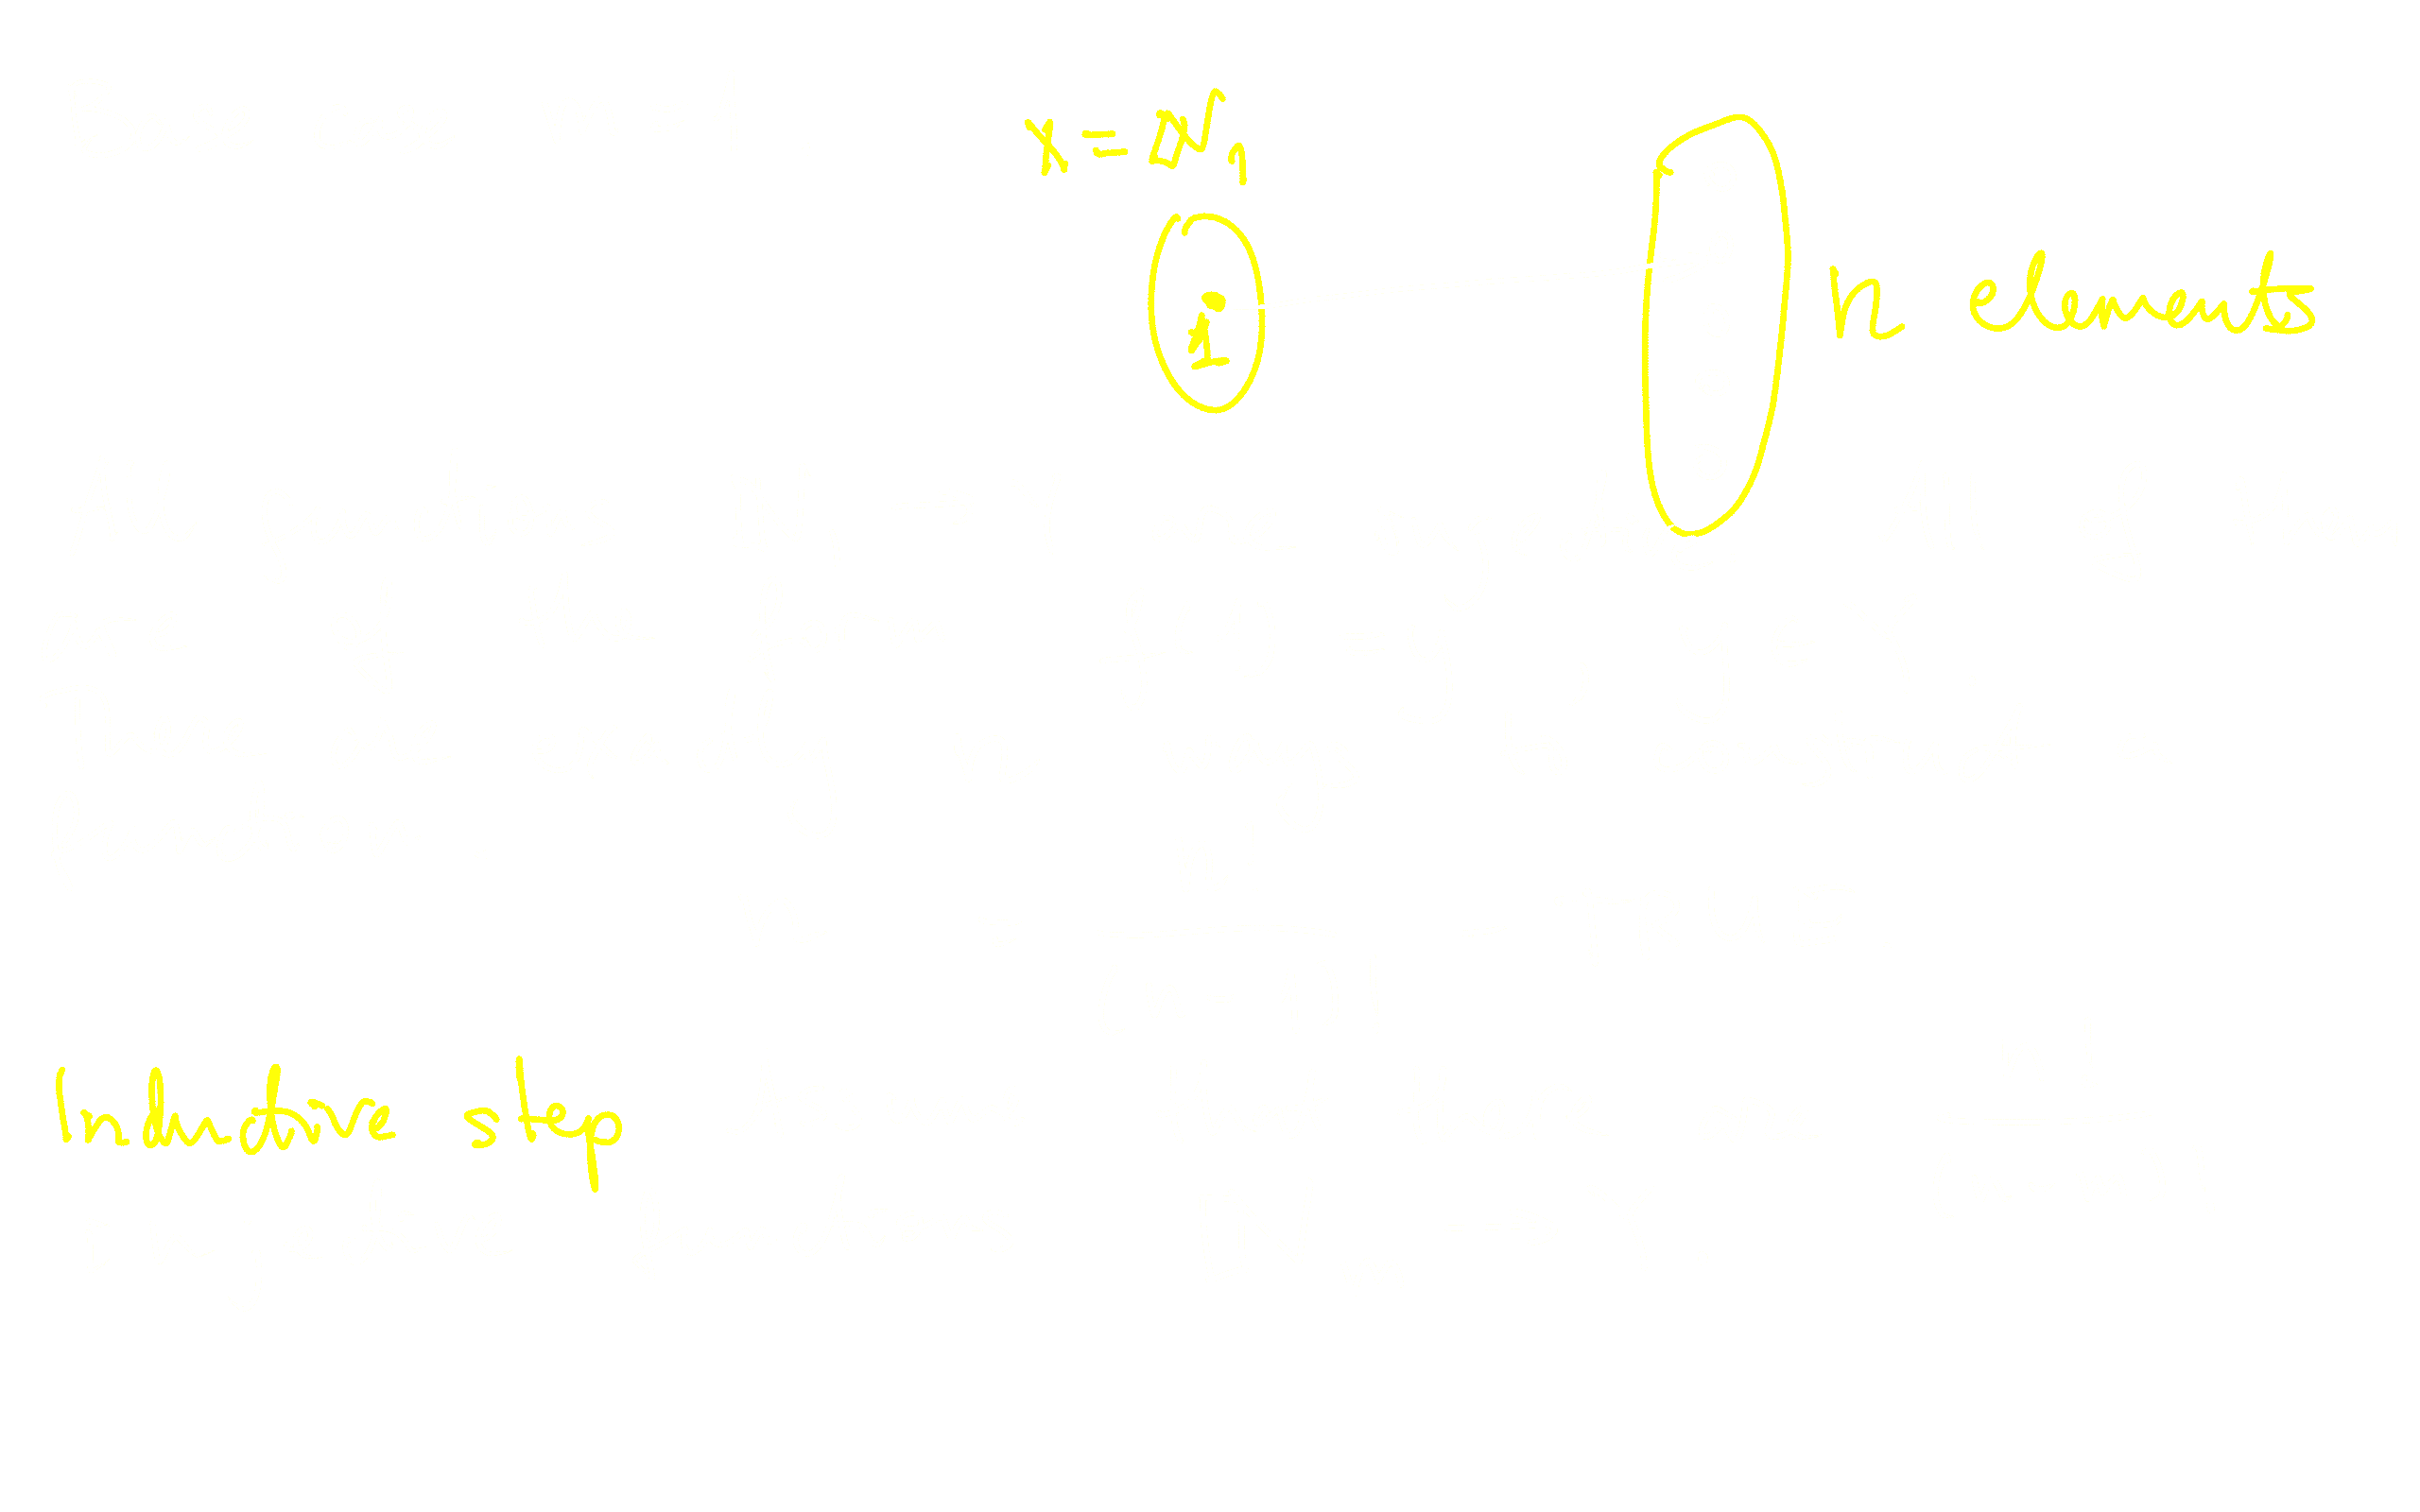 X = ℕ₁
n elements
1
Inductive step